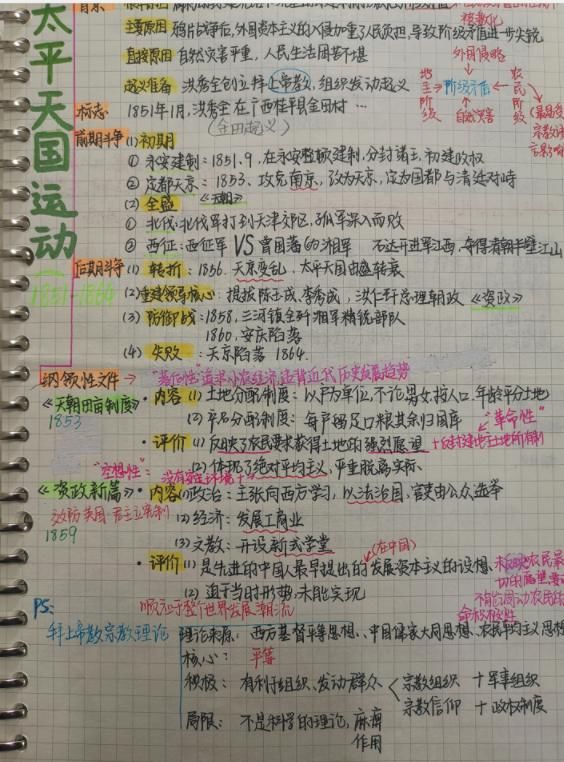 太平天国运动
(1851-1864)
主要原因 鸦片战争后,外国资本主义的入侵加重了人民负担,导致阶级矛盾进一步尖锐
直接原因 自然灾害严重,人民生活困苦不堪
外国侵略
地主阶级 阶级矛盾 农民阶级
自然灾害
起义准备 洪秀全创立拜上帝教,组织发动起义
标志 1851年1月,洪秀全在广西桂平县金田村…
(金田起义)
前期斗争 (1) 初期
① 永安建制:1851.9,在永安整顿建制,分封诸王,初建政权
② 定都天京:1853,攻克南京,改为天京,定为国都与清廷对峙
(2) 全盛
① 北伐:北伐军打到天津郊区,孤军深入而败
② 西征:西征军 VS 曾国藩的湘军 石达开进军江西,夺得半壁江山
后期斗争 (1) 转折:1856,天京变乱,太平天国由盛转衰
(2) 重建领导核心:提拔陈玉成,李秀成,洪仁玕总理朝政《资政》
(3) 防御战:1858,三河镇全歼湘军精锐部队
1860,安庆陷落
(4) 失败:天京陷落 1864.
纲领性文件 "落后性"追求小农经济,违背近代历史发展趋势
《天朝田亩制度》·内容 (1) 土地分配制度:以户为单位,不论男女按人口、年龄平分土地
1853
(2) 产品分配制度:每户留足口粮其余归国库
"革命性"
·评价 (1) 反映了农民要求获得土地的强烈愿望 +反封建地主土地所有制
"空想性":没有安定环境+
(2) 体现了绝对平均主义,严重脱离实际
《资政新篇》·内容 (1) 政治:主张向西方学习,以法治国,官吏由公众选举
效防英国-君主立宪制
1859
(2) 经济:发展工商业
(3) 文教:开设新式学堂
(在中国)
·评价 (1) 是先进的中国人最早提出的发展资本主义的设想,未反映农民最
(2) 迫于当时形势,未能实现
顺应了整个世界发展潮流
PS:
拜上帝教宗教理论 理论来源:西方基督平等思想、中国儒家大同思想、农民平均主义思想
核心:平等
积极:有利于组织、发动群众 宗教组织 + 军事组织
宗教信仰 + 政权制度
局限:不是科学的理论,麻痹作用